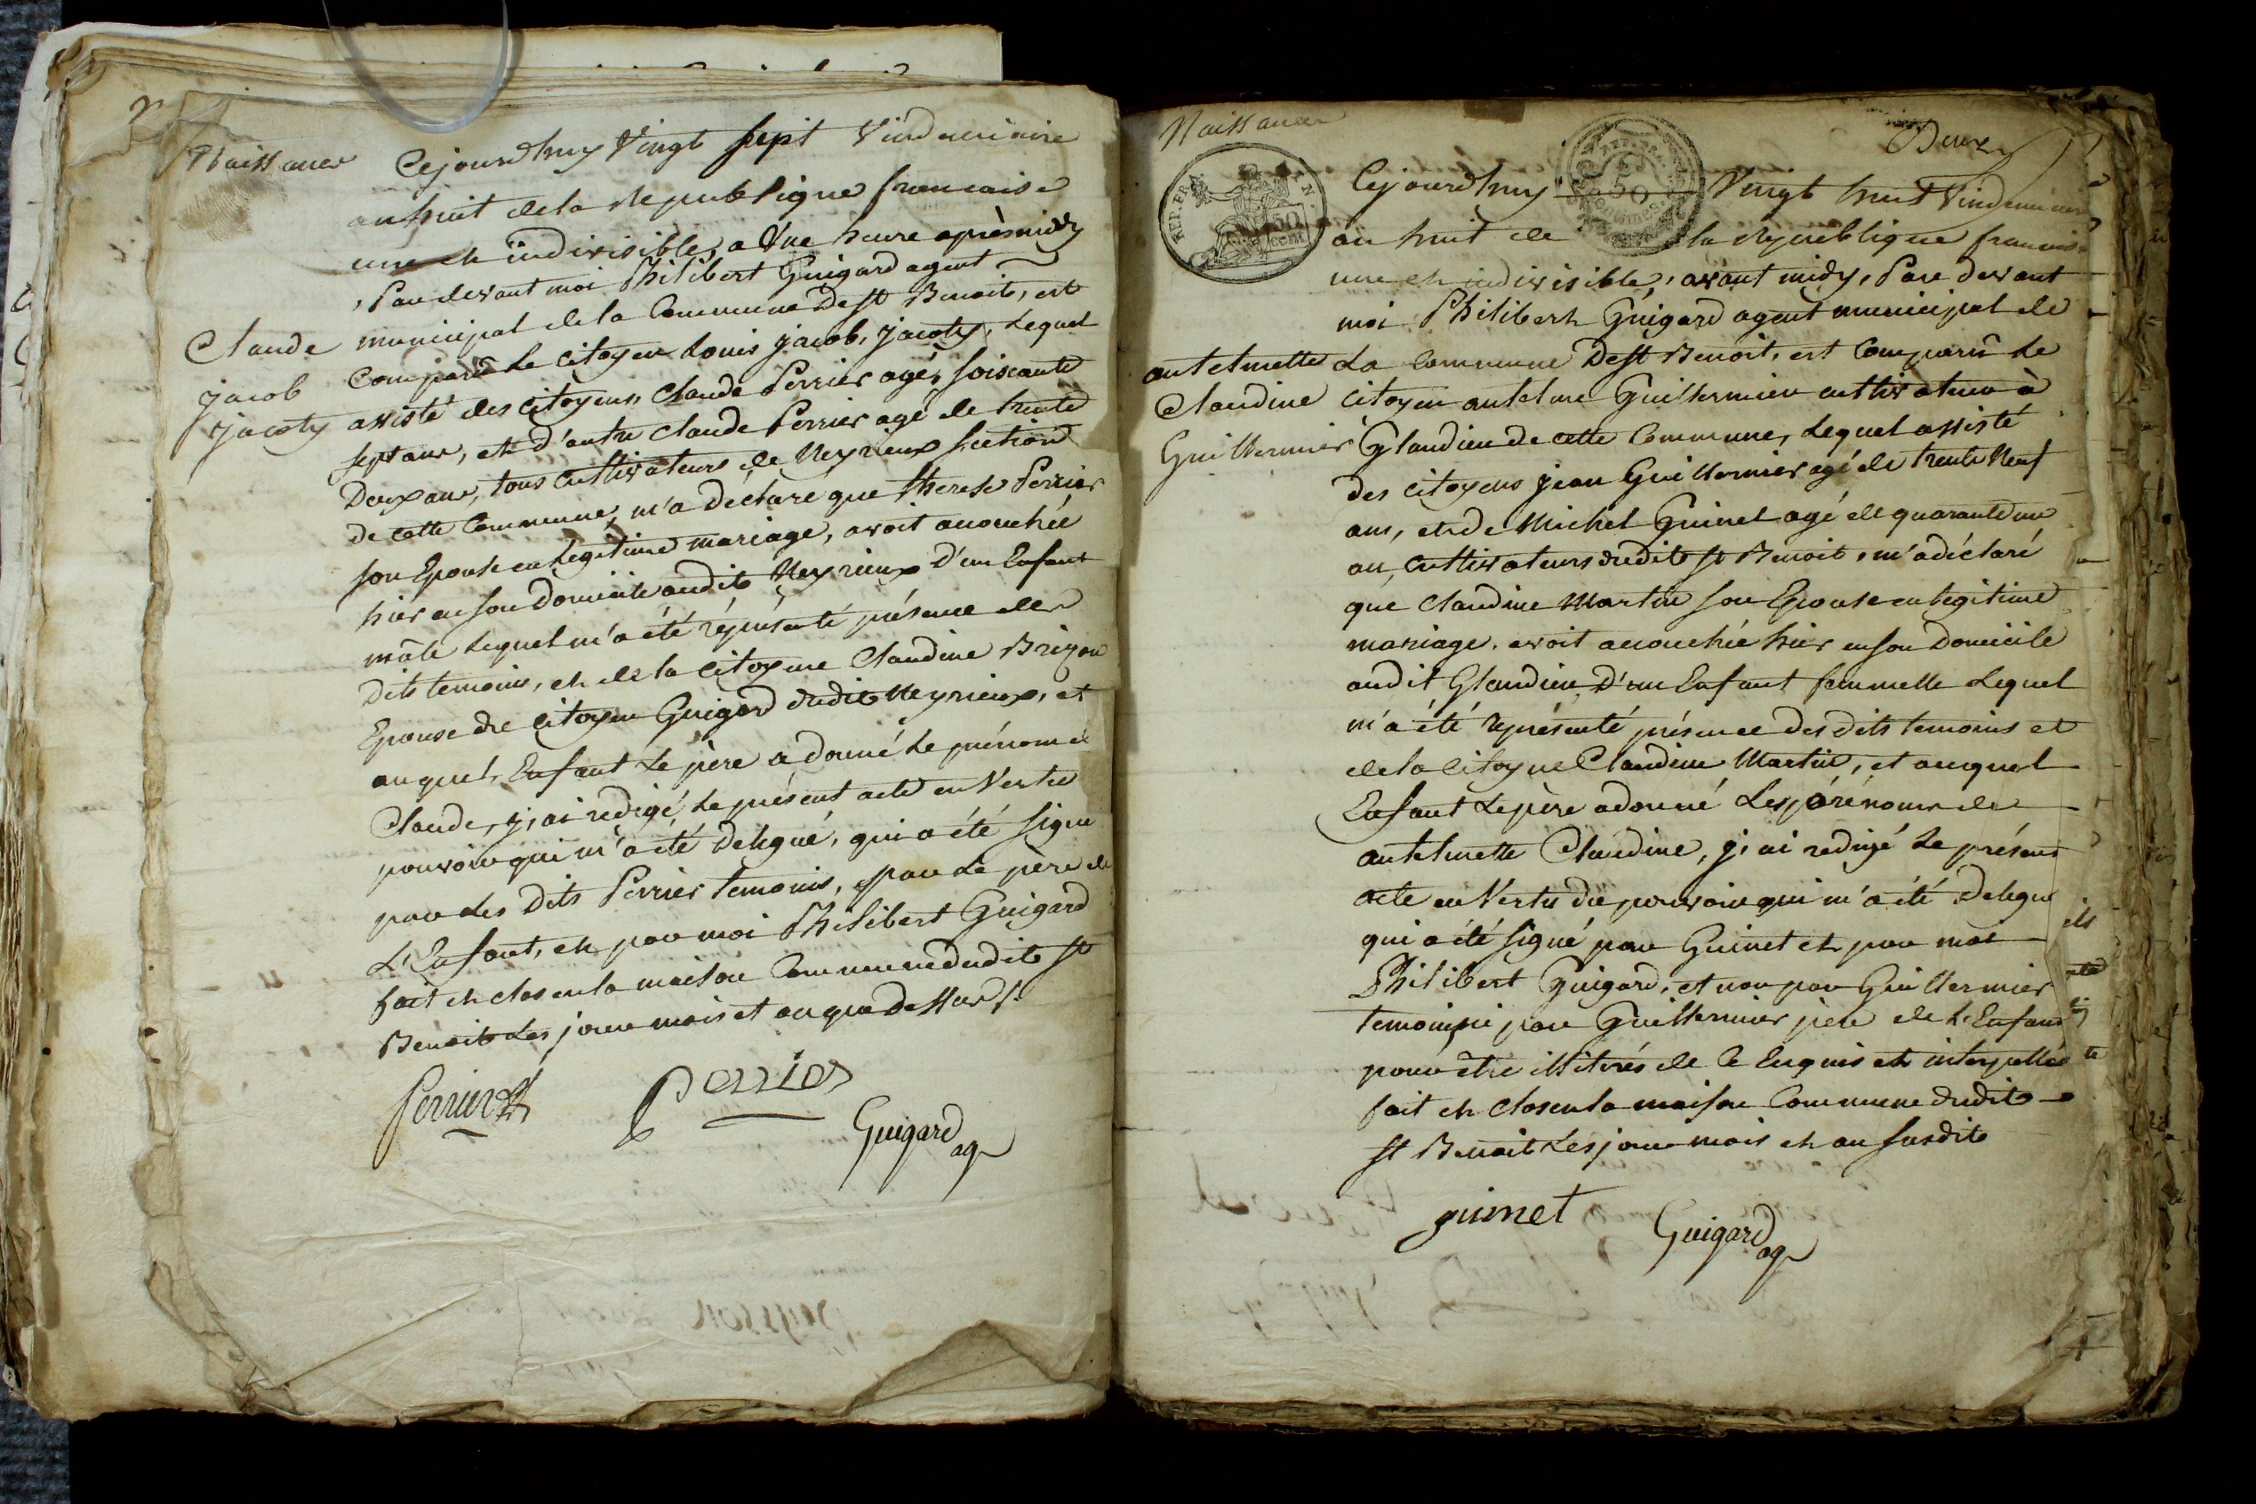 Naissance
Claude
jacob
jacoty
Cejourdhuy Vingt sept Vindemiaire
an huit dela Republique francaise
une et indivisible, a Une heure après midy
, Pardevant moi Philibert Guigard agent
municipal dela Commune De st Benoit, est
Comparu Le citoyen Louis jacob, jacoty, Lequel
assisté des citoyens, Claude Perrier agé, soixante
sept ans, et d'autre Claude Perrier agé de trente
Deux ans, tous Cultivateurs de Meyrieux section
de cette Commune, m'a déclaré que therese Perrier
son Epouse en Legitime mariage, avoit accouchée
hier en son Domicile audit Meyrieux D'un Enfant
mâle Lequel m'a été réprésenté présence des
Dits temoins, et de la citoyene Claudine Brizon
Epouse du citoyen Guigard dudit Meyrieux, et
auquel Enfant Le père a donné Le prénom de
Claude, j'ai redigé, Le présent acte en Vertu
pouvoir qui m'a été Delegué, qui a été signé
par Les Dits Perrier temoins, par Le père de
L'Enfant, et par moi Philibert Guigard
fait et clos en la maison Commune dudit st
Benoit Les jour mois et an que dessus /.
Perrier
perrier
Guigard ag
Naissance
Deux
REP. FRA.
50
cent
50
antelmette
Claudine
Guillermier
Cejourdhuy Vingt huit Vindemiaire
an huit de la Republique francaise
une et indivisible, avant midy, Pare devant
moi Philibert Guigard agent municipal de
La Commune De st Benoit, est Comparû Le
citoyen antelme Guillermier cultivateur à
Glandieu de cette Commune, Lequel assisté
des citoyens jean Guillermier agé de trente Neuf
ans, et de Michel Guinet agé de quarante un
an, Cultivateurs dudit st Benoit, m'a déclaré
que Claudine Martin son Epouse en legitime
mariage, avoit accouchée hier en son Domicile
audit Glandieu D'un Enfant femmelle Lequel
m'a été réprésenté présence des dits temoins et
de la Citoyene Claudine Martin, et auquel
Enfant Le père a donné Les prénoms de
antelmette Claudine, j'ai redigé Le présent
acte en Vertu du pouvoir qui m'a été Delegué
qui a été signé par Guinet et par moi
Philibert Guigard, et non par Guillermier
temoin, ni par Guillermier père de L'Enfant
pour etre illitérés de Ce Enquis et interpellés
fait et clos en la maison Commune dudit
st Benoit Les jour mois et an susdits
guinet
Guigard ag